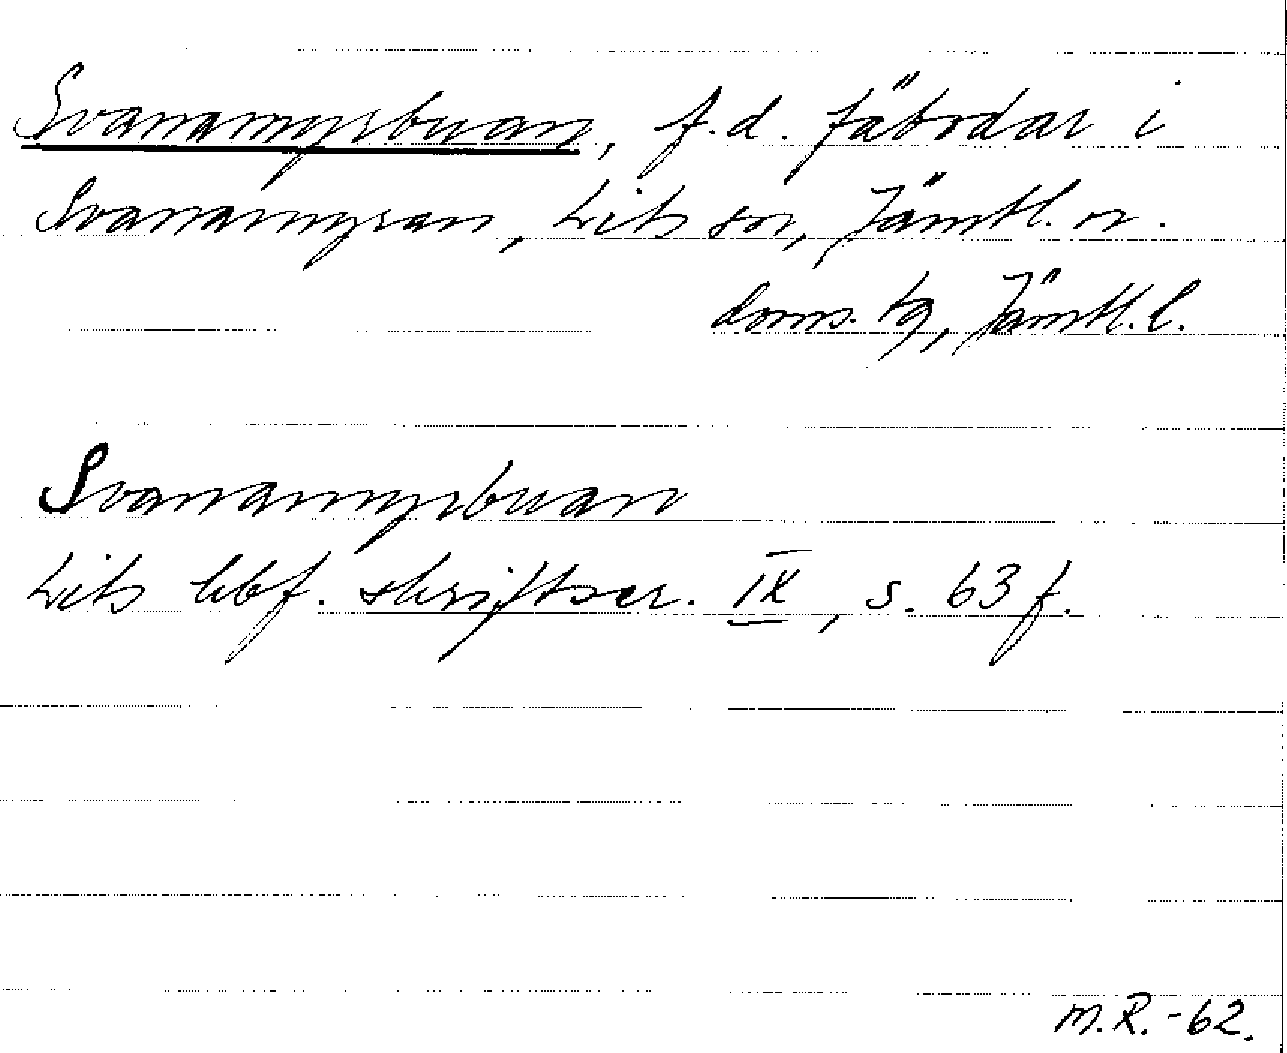 Svanamyrbuan, f.d. fäbodar i
Svanamyran, Lits sn, Jämtl. n.
doms. tg, Jämtl. l.
Svanamyrbuan
Lits hbf. skriftser. IX, s. 63 f.
M.R.-62.